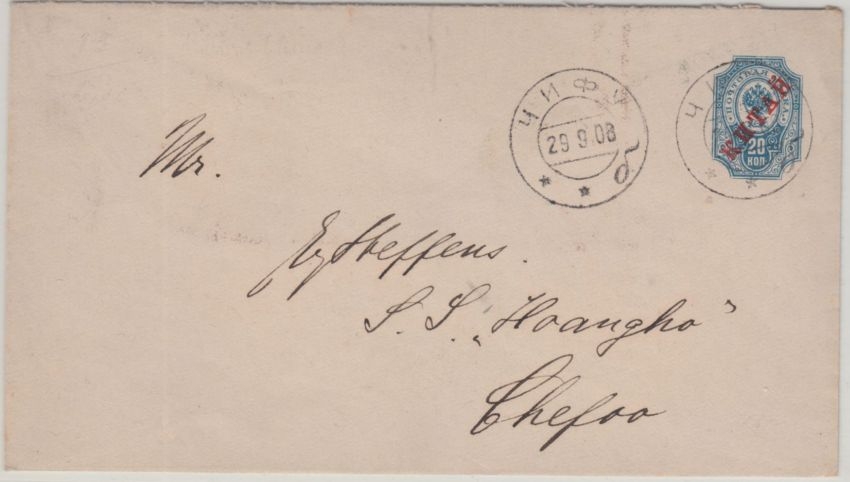 ЧИФУ
29 9.08
б
Ч И
ПОЧТОВАЯ МАРКА
КИТАЙ
20
КОП
Mr.
Steffens.
S. S. „Hoangho"
Chefoo